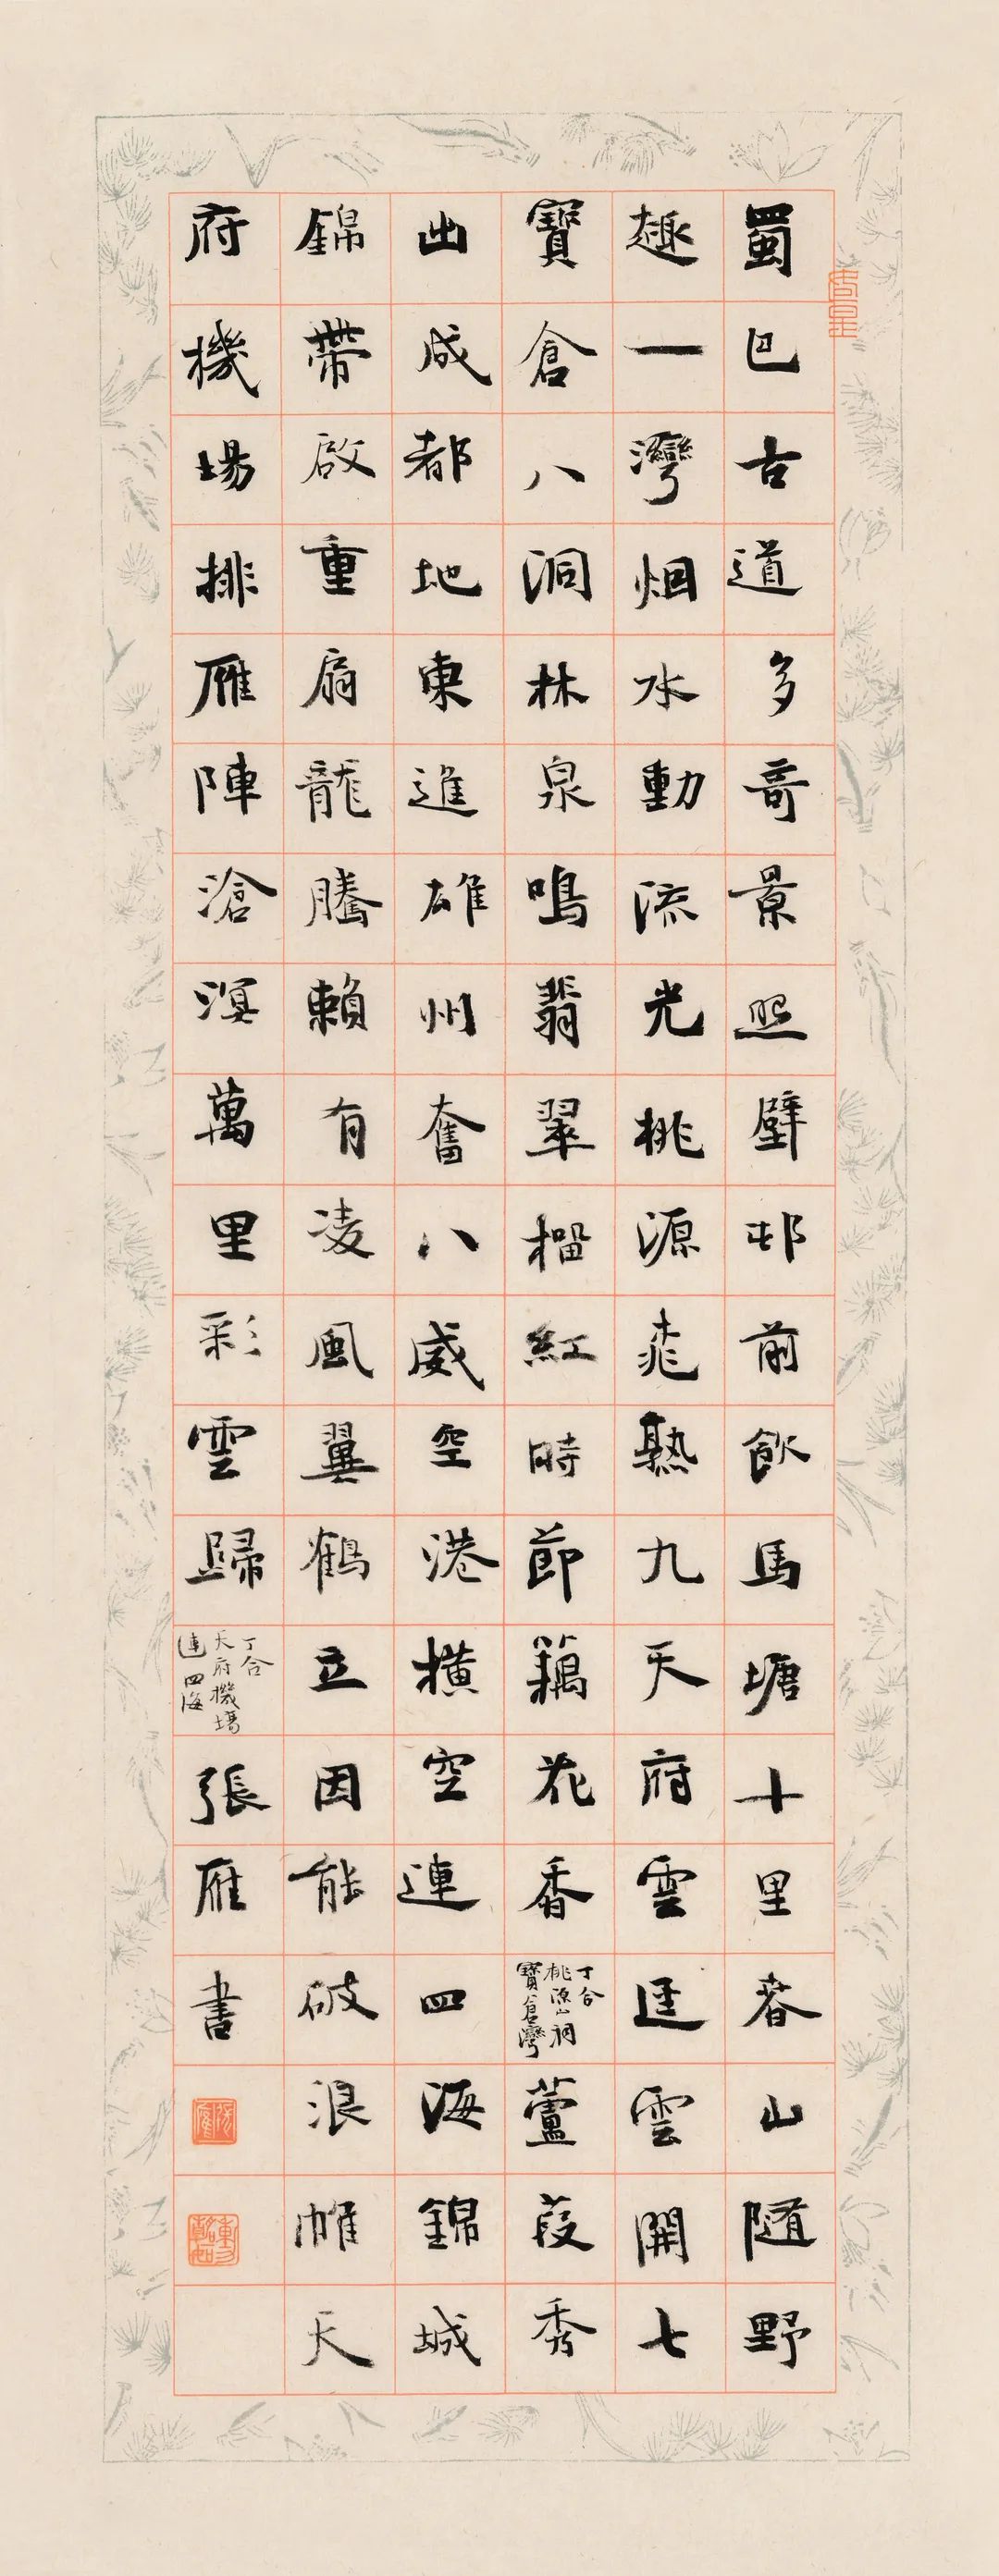 蜀巴古道多奇景照壁邨前飲馬塘十里春山隨野
趣一灣烟水動流光桃源桃熟九天府雲逕雲開七
寶倉八洞林泉鳴翡翠榴紅時節藕花香
丁合
桃源山祠
寶倉灣
蘆葭秀
出成都地東進雄州奮八威空港橫空連四海錦城
錦帶啟重扇龍騰賴有凌風翼鶴立因能破浪帷天
府機場排雁陣滄溟萬里彩雲歸
丁合
天府機場
連四海
張雁書
張雁